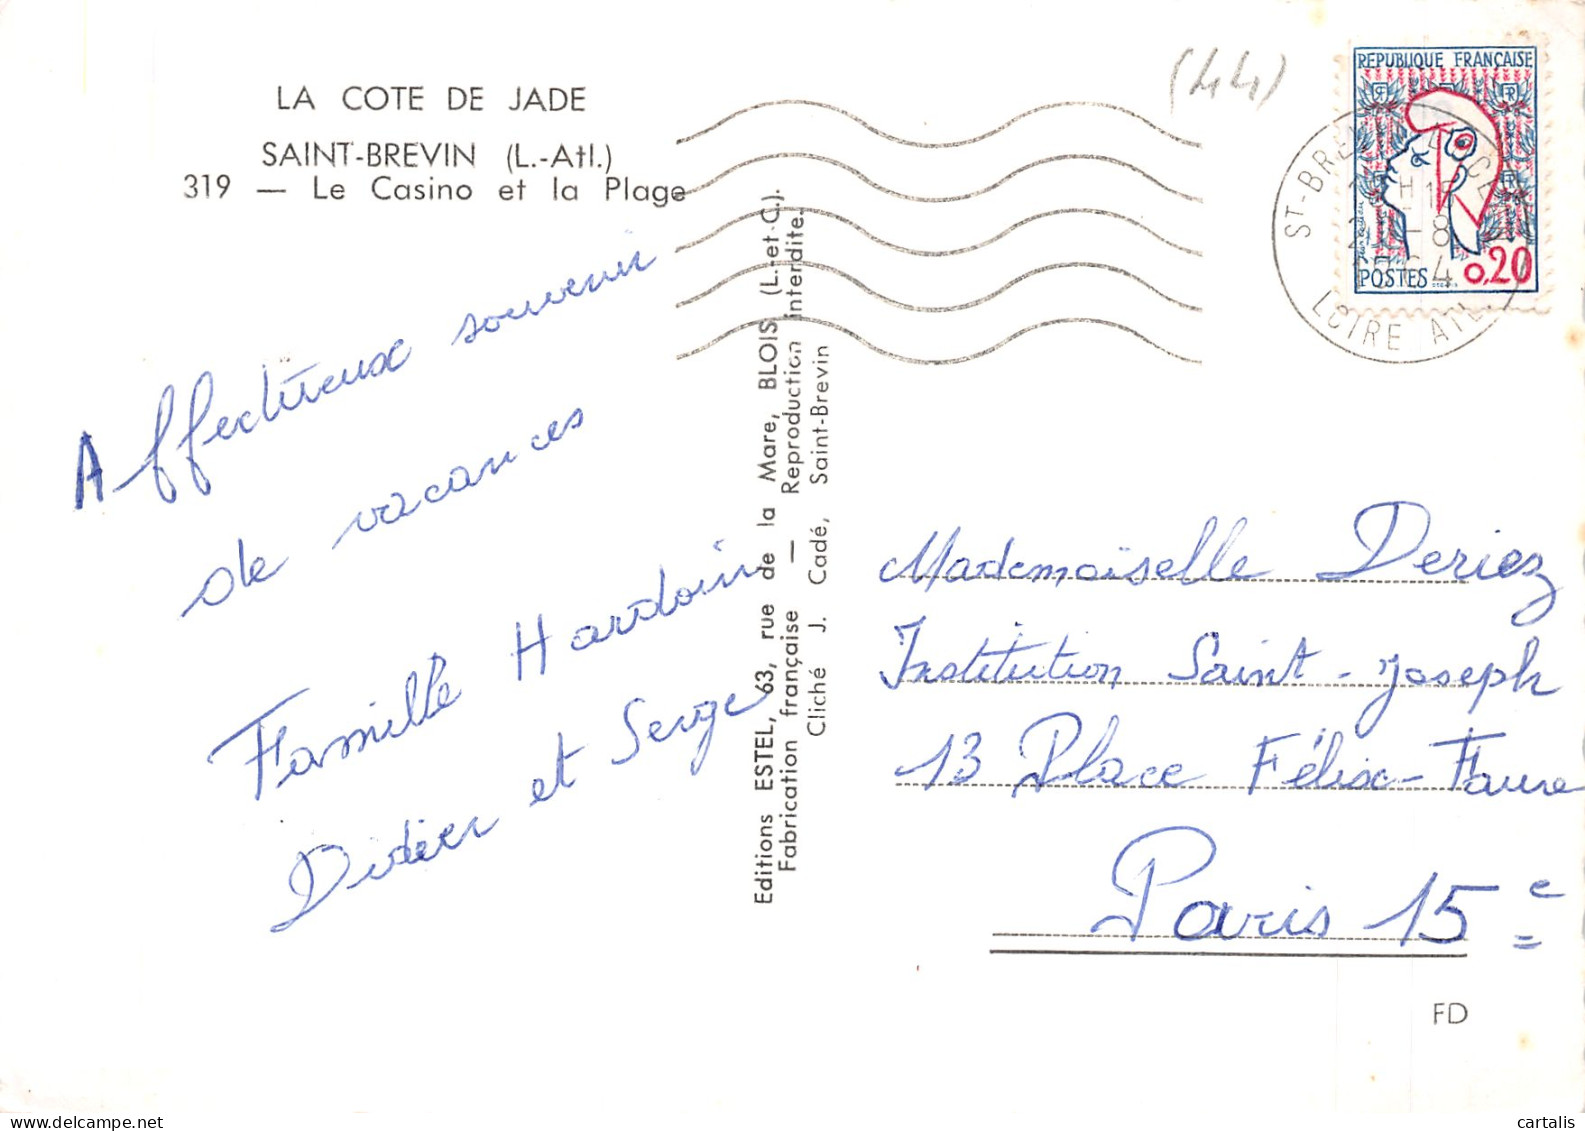 LA COTE DE JADE
SAINT-BREVIN (L.-Atl.)
319 — Le Casino et la Plage
Affectueux souvenir
de vacances
Famille Hardouin
Didier et Serge
Editions ESTEL, 63, rue de la Mare, BLOIS (L.-et-C.).
Fabrication française — Reproduction interdite.
Cliché J. Cadé, Saint-Brevin
(44)
REPUBLIQUE FRANÇAISE
POSTES 0,20
ST-BREVIN
-8
LOIRE ATL.
Mademoiselle Deriez
Institution Saint-Joseph
13 Place Félix-Faure
Paris 15e
FD
www.delcampe.net
cartalis